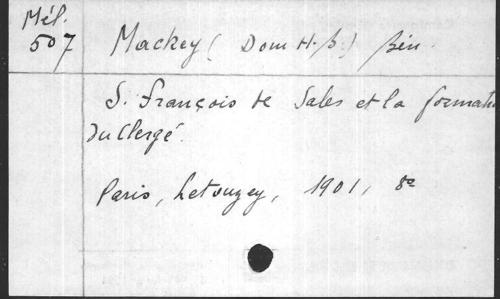 Mél.
507
Mackey (Dom H.-B.) Bén.
S. François de Sales et la formation
du Clergé.
Paris, Letouzey, 1901, 8º